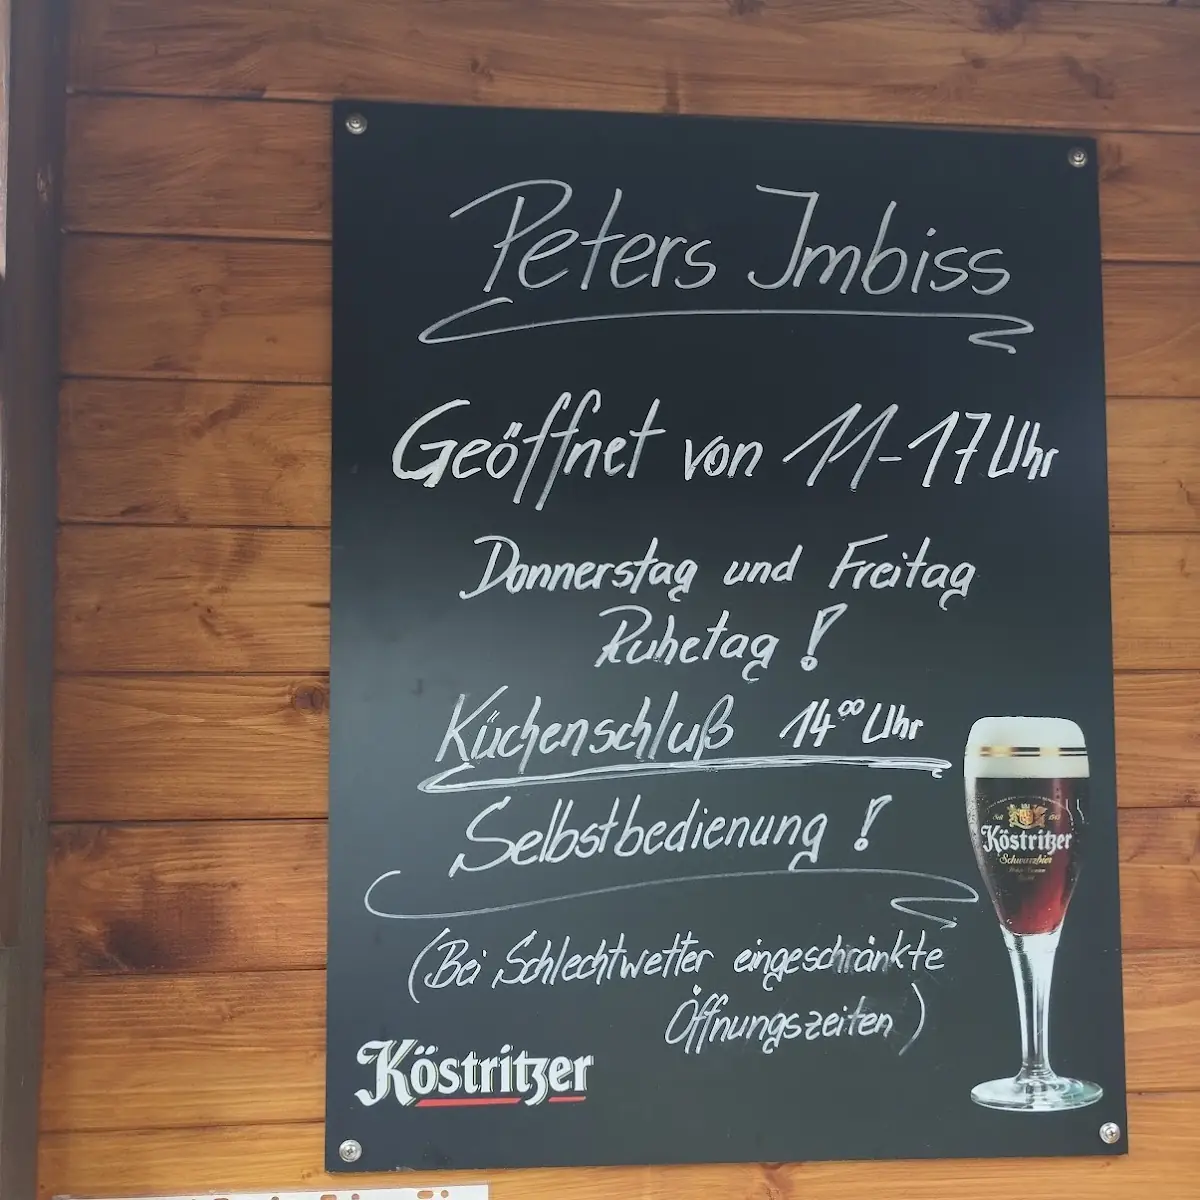 Peters Imbiss
Geöffnet von 11-17 Uhr
Donnerstag und Freitag
Ruhetag!
Küchenschluß 14⁰⁰ Uhr
Selbstbedienung!
(Bei Schlechtwetter eingeschränkte
Öffnungszeiten)
Köstritzer
Seit 1543
Köstritzer
Schwarzbier